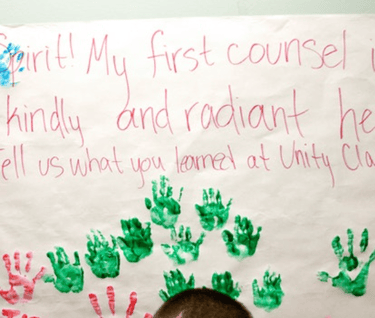 Spirit! My first counsel i
kindly and radiant he
Tell us what you learned at Unity Cla